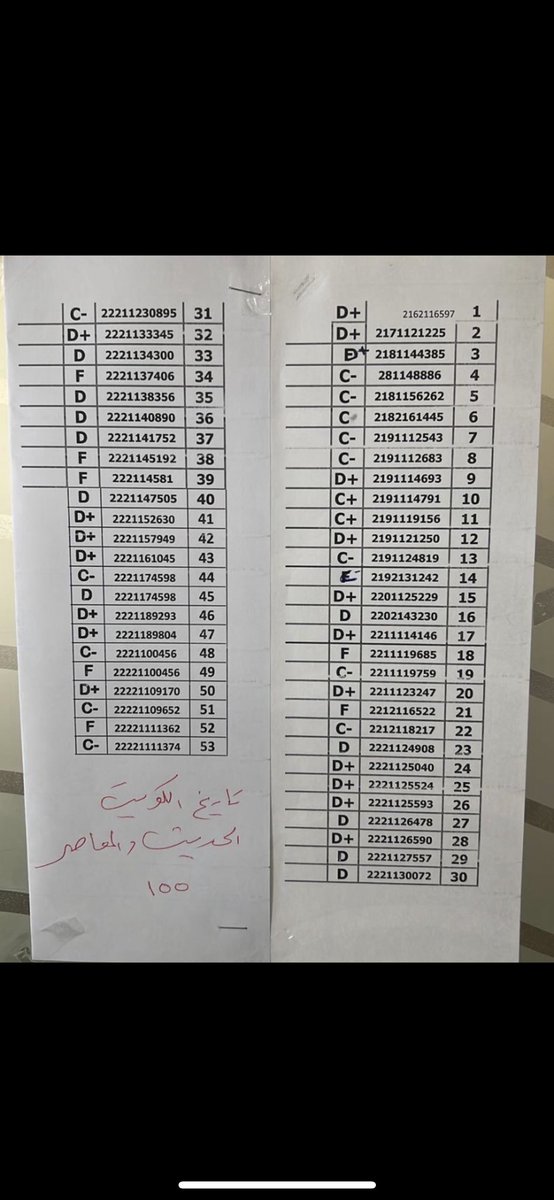 D+ 2162116597 1
D+ 2171121225 2
D+ 2181144385 3
C- 281148886 4
C- 2181156262 5
C 2182161445 6
C- 2191112543 7
C- 2191112683 8
D+ 2191114693 9
C+ 2191114791 10
C+ 2191119156 11
D+ 2191121250 12
C- 2191124819 13
2192131242 14
D+ 2201125229 15
D 2202143230 16
D+ 2211114146 17
F 2211119685 18
C- 2211119759 19
D+ 2211123247 20
F 2212116522 21
C- 2212118217 22
D 2221124908 23
D+ 2221125040 24
D+ 2221125524 25
D+ 2221125593 26
D 2221126478 27
D+ 2221126590 28
D 2221127557 29
D 2221130072 30
C- 22211230895 31
D+ 2221133345 32
D 2221134300 33
F 2221137406 34
D 2221138356 35
D 2221140890 36
D 2221141752 37
F 2221145192 38
F 222114581 39
D 2221147505 40
D+ 2221152630 41
D+ 2221157949 42
D+ 2221161045 43
C- 2221174598 44
D 2221174598 45
D+ 2221189293 46
D+ 2221189804 47
C- 2221100456 48
F 22221100456 49
D+ 22221109170 50
C- 22221109652 51
F 22221111362 52
C- 22221111374 53
تاريخ الكويت
الحديث والمعاصر
١٥٥